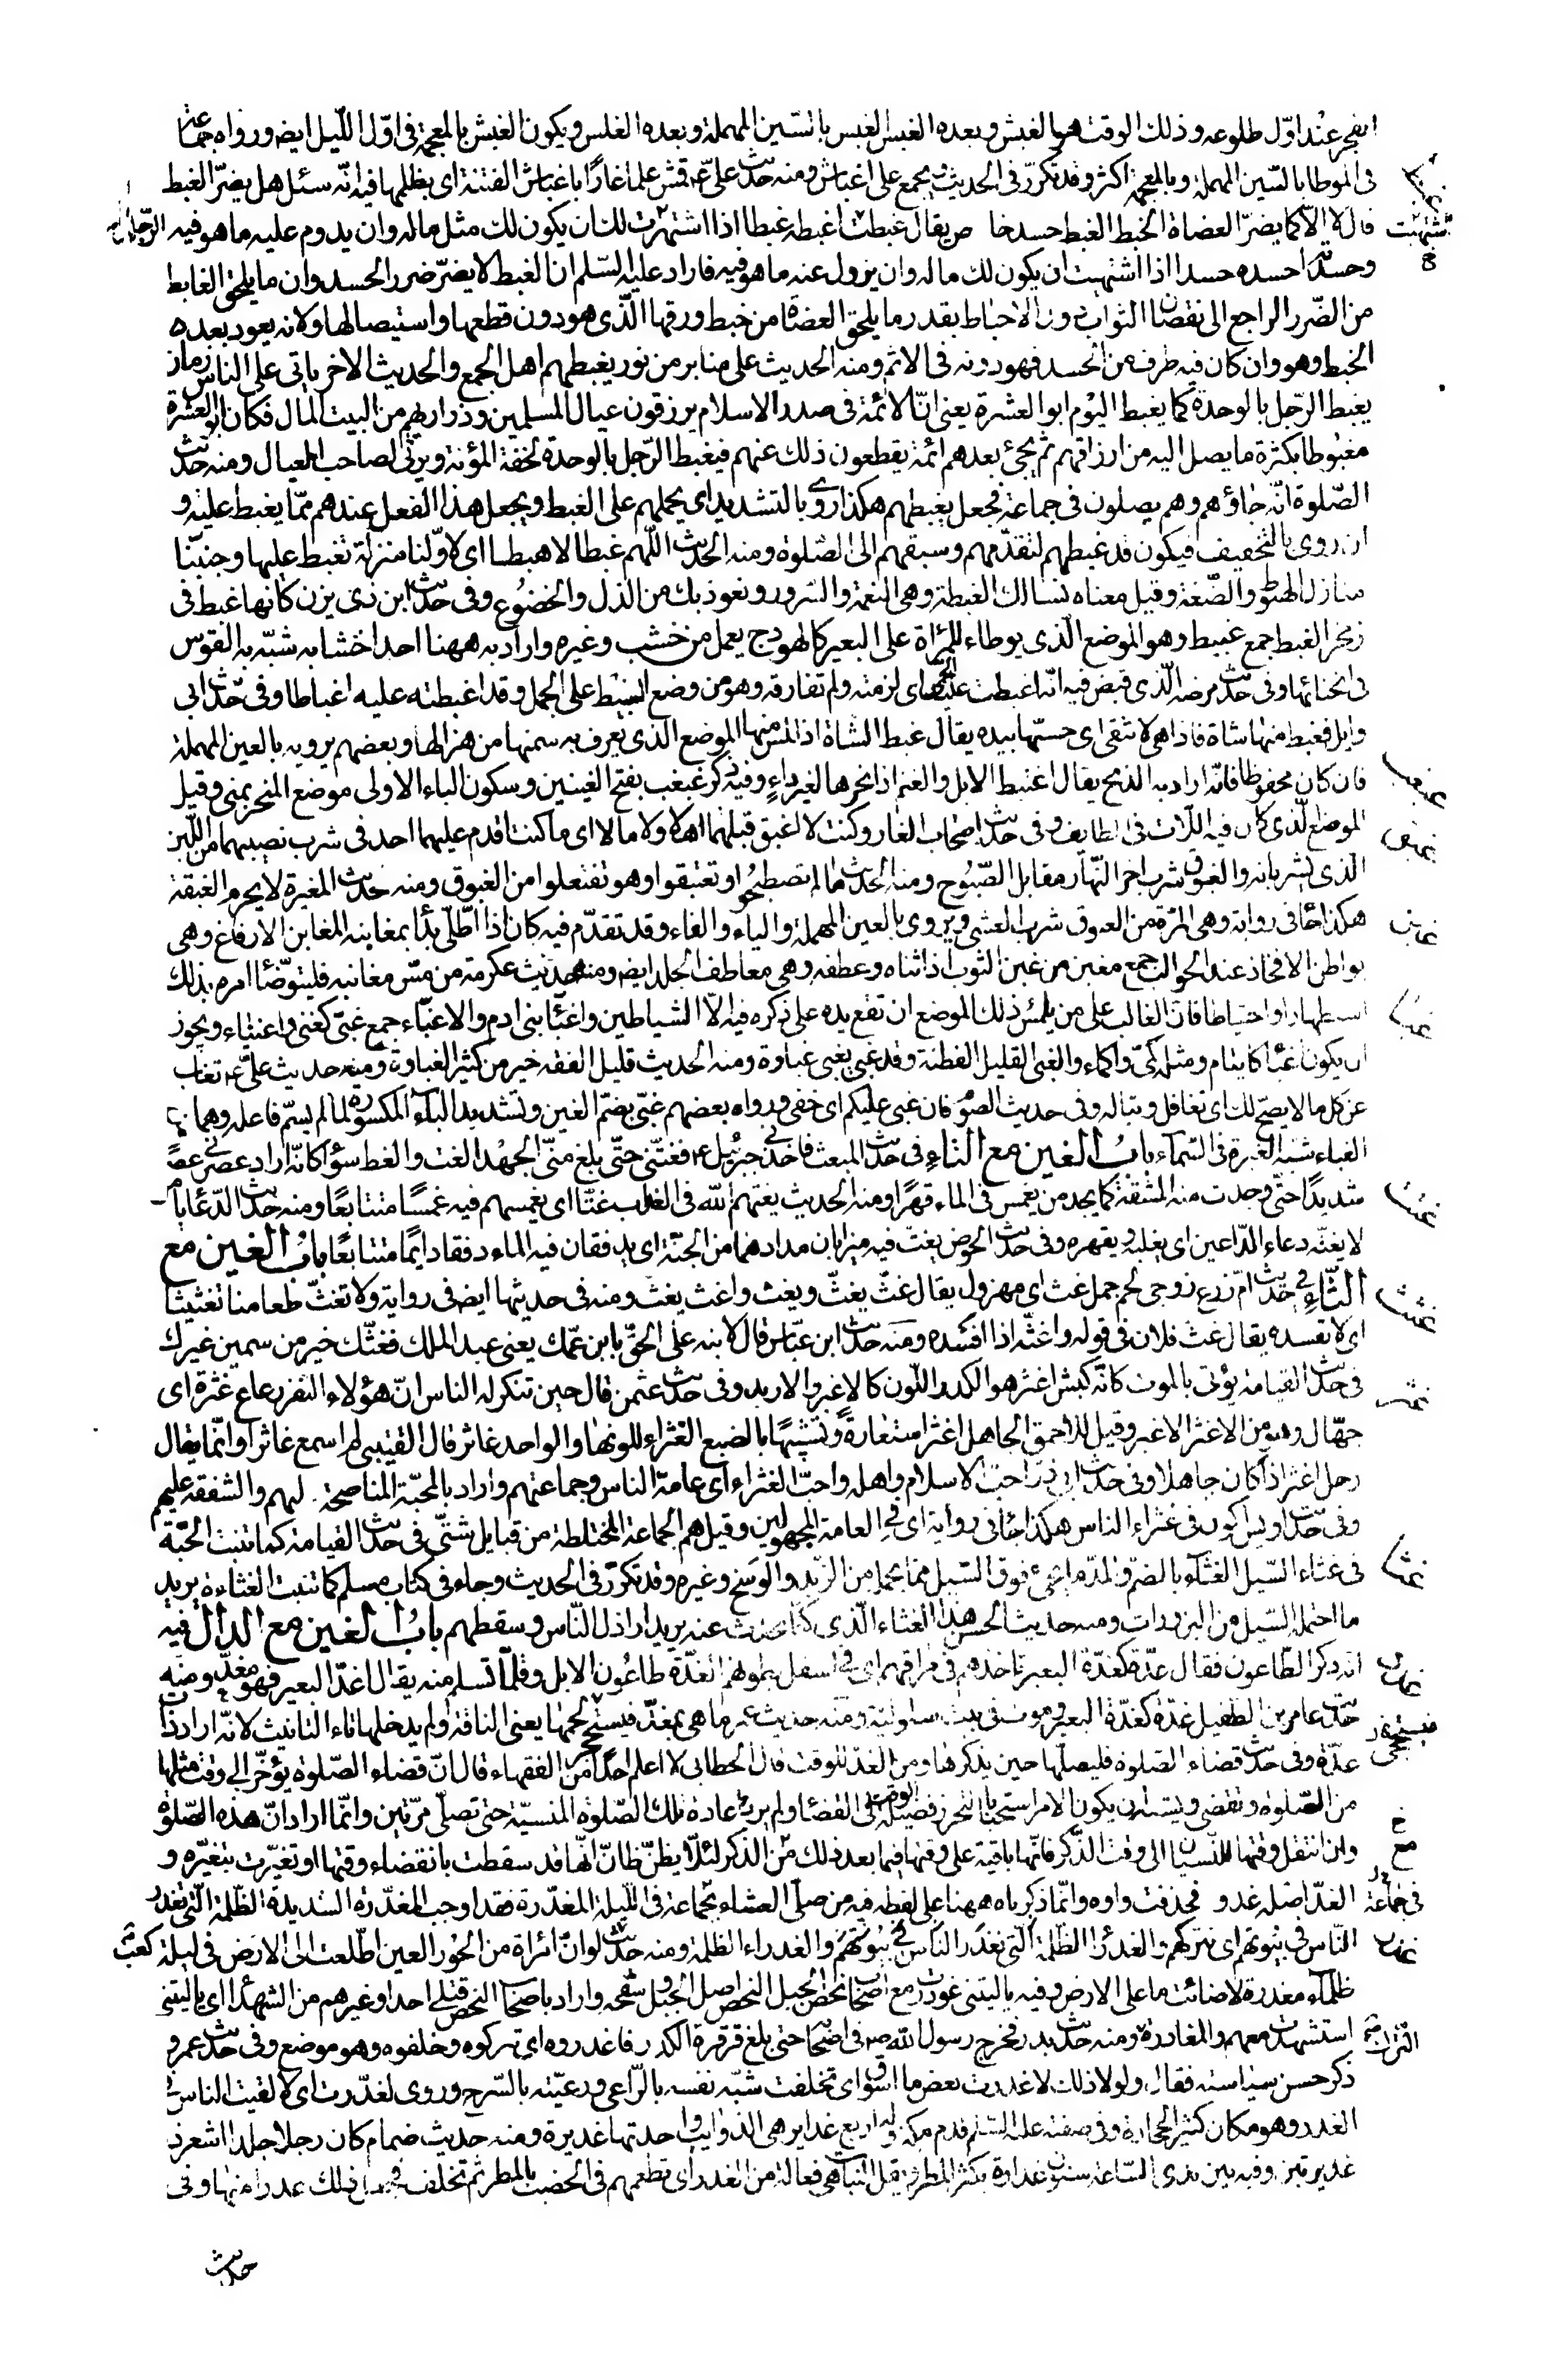 انفجر عند اوّل طلوعه وذلك الوقت هو الغبش وبعده الغبس الغبس بالسّين المهملة وبعده الغلس ويكون الغبش بالمعجمة فى اوّل اللّيل ايضا ورواه جماعة
فى الموطا بالسّين المهملة وبالمعجمة اكثر وقد تكرّر فى الحديث ويجمع على اغباش ومنه حديث علىّ ع قمش علما غارًا باغباش الفتنة اى بظلمها فيه انّه سئل هل يضرّ الغبط
قال لا الّا كما يضرّ العضاة الخبط الغبط حسد خاص يقال غبطت اغبطه غبطا اذا اشتهيت لك ان يكون لك مثل ماله وان يدوم عليه ما هو فيه
وحسدته احسده حسدا اذا اشتهيت ان يكون لك ماله وان يزول عنه ما هو فيه فاراد عليه السّلم ان الغبط لا يضرّ ضرر الحسد وان ما يلحق الغابط
من الضّرر الراجع الى نقصان الثواب دون الاحباط بقدر ما يلحق العضاة من خبط ورقها الّذى هو دون قطعها واستيصالها ولانه يعود بعده
الخبط وهو وان كان فيه طرف من الحسد فهو دونه فى الاثم ومنه الحديث على منابر من نور يغبطهم اهل الجمع والحديث الاخر ياتى على الناس زمان
يغبط الرّجل بالوحدة كما يغبط اليوم ابو العشرة يعنى انّ الائمّة فى صدر الاسلام يرزقون عيال المسلمين وذراريهم من البيت المال فكان ابو العشرة
مغبوطا بكثرة ما يصل اليه من ارزاقهم ثم يجئ بعدهم ائمّة يقطعون ذلك عنهم فيغبط الرّجل بالوحدة لخفة المؤنة ويرثى لصاحب العيال ومنه حديث
الصّلوة انّه جاؤهم وهم يصلون فى جماعة فجعل يغبطهم هكذا روى بالتشديد اى يحملهم على الغبط ويجعل هذا الفعل عندهم ممّا يغبط عليه و
ان روى بالتخفيف فيكون قد غبطهم لتقدّمهم وسبقهم الى الصّلوة ومنه الحديث اللّهم غبطا لا هبطا اى اولنا منزلة نغبط عليها وجنّبنا
منازل الهبوط والضّعة وقيل معناه نسالك الغبطة وهى النعمة والسّرور ونعوذ بك من الذل والخضوع وفى حديث ابن ذى يزن كانها غبط فى
زمخر الغبط جمع غبيط وهو الموضع الّذى يوطاء للمراة على البعير كالهودج يعمل من خشب وغيره واراد به ههنا احد اخشابه شبّه به القوس
فى انحنائها وفى حديث مرضه الّذى قبض فيه انّه اغبطت عليه الحمى اى لزمته ولم تفارقه وهو من وضع الغبيط على الجمل وقد اغبطته عليه اغباطا وفى حديث ابى
وايل فغبط منها شاة فاذا هى لا تنقى اى جسّها بيده يقال غبط الشاة اذا لمس منها الموضع الّذى يعرف به سمنها من هزالها وبعضهم يرويه بالعين المهملة
فان كان محفوظا فانّه اراد به الذبح يقال اغتبط الابل والغنم اذا نحرها لغير داء وفيه ذكر غبغب بفتح الغينين وسكون الباء الاولى موضع المنحر بمنى وقيل
الموضع الّذى كان فيه اللّات فى الطايف وفى حديث اصحاب الغار وكنت لا اغبق قبلهما اهلا ولا مالا اى ما كنت اقدم عليهما احد فى شرب نصيبهما من اللّبن
الذى يشربانه والغبوق شرب اخر النّهار مقابل الصّبوح ومنه الحديث مالم تصطبحوا او تغتبقوا وهو تفتعلوا من الغبوق ومنه حديث المغيرة لا يحرم الغبقة
هكذا جاء فى رواية وهى المرّة من الغبوق شرب العشى ويروى بالعين المهملة والياء والفاء وقد تقدّم فيه كان اذا اطّلى بدأ بمغابنه المغابن الارفاغ وهى
بواطن الافخاذ عند الحوالب جمع مغبن من غبن الثوب اذا ثناه وعطفه وهى معاطف الجلد ايضا ومنه حديث عكرمة من مسّ مغابنه فليتوضّا امره بذلك
استظهارا واحتياطا فان الغالب على من يلمس ذلك الموضع ان تقع يده على ذكره فيه الّا الشياطين واغبياء بنى ادم والاغبياء جمع غبىّ كغنى واغنياء ويجوز
ان يكون اغباء كايتام ومثله كمىّ واكماء والغبى القليل الفطنة وقد غبى يغبى غباوة ومنه الحديث قليل الفقه خير من كثير الغباوة ومنه حديث علىّ ع تغاب
عن كل ما لا يصحّ لك اى تغافل وتباله وفى حديث الصوم فان غبى عليكم اى خفى ورواه بعضهم غبّى بضمّ الغين وتشديد الباء المكسورة لمالم يسمّ فاعله وهما من
الغباء شبه الغبرة فى السّماء باب الغين مع التاء فى حديث المبعث فاخذنى جبرئيل ع فغتّنى حتّى بلغ منّى الجهد الغت والغط سواء كانّه اراد عصرنى عصرا
شديدًا حتّى وجدت منه المشقّة كما يجد من يغمس فى الماء قهرًا ومنه الحديث يغتهم اللّه فى العذاب غتّا اى يغمسهم فيه غمسًا متتابعًا ومنه حديث الدّعاء يا من
لا يغتّه دعاء الدّاعين اى يغلبه ويقهره وفى حديث الحوض يغت فيه ميزابان مدادهما من الجنّة اى يدفقان فيه الماء دفقا دايمًا متتابعًا باب الغين مع
الثّاء فى حديث امّ زرع زوجى لحم جمل غث اى مهزول يقال غثّ يغثّ ويغث واغث يغث ومنه فى حديثها ايضا فى رواية ولا تغثّ طعامنا تغثيثا
اى لا تفسده يقال غث فلان فى قوله واغثّه اذا افسده ومنه حديث ابن عبّاس قال لابنه على الحق بابن عمّك يعنى عبد الملك فغثّك خير من سمين غيرك
فى حديث القيامة يؤتى بالموت كانّه كبش اغثر هو الكدر اللّون كالاغبر والاربد وفى حديث عثمن قال حين تنكر له الناس انّ هؤلاء النفر رعاع غثرة اى
جهّال وهو من الاغثر الاغبر وقيل للاحمق الجاهل اغثر استعارة وتشبيهًا بالضبع الغثراء للونها والواحد غاثر قال القتيبى لم اسمع غاثرا وانّما يقال
رجل اغثر اذا كان جاهلا وفى حديث ابى ذر احبّ الاسلام واهله واحبّ الغثراء اى عامة الناس وجماعتهم واراد بالمحبّة المناصحة لهم والشفقة عليهم
وفى حديث اويس اكون فى غثراء الناس هكذا جاء فى رواية اى فى العامة المجهولين وقيل هم الجماعة المختلطة من قبايل شتّى فى حديث القيامة كما تنبت الحبّة
فى غثاء السّيل الغثاء بالضم والمدّ ما يجئ فوق السّيل ممّا يحمله من الزّبد والوسخ وغيره وقد تكرّر فى الحديث وجاء فى كتاب مسلم كما تنبت الغثاءة يريد
ما احتمله السّيل من البزورات ومنه حديث الحسن هذا الغثاء الّذى كنا نحدث عنه يريد ارذال النّاس وسقطهم باب الغين مع الدال فيه
انه ذكر الطّاعون فقال غدّة كغدّة البعير تاخذهم فى مراقهم اى فى اسفل بطونهم الغدّة طاعون الابل وقلّما تسلم منه يقال اغدّ البعير فهو مغدّ ومنه
حديث عامر بن الطفيل غدّة كغدّة البعير وموت فى بيت سلولية ومنه حديث عمر ما هى بمغدّ فيستحجى لحمها يعنى الناقة ولم يدخلها تاء التانيث لانّه اراد ذات
غدّة وفى حديث قضاء الصّلوة فليصلّها حين يذكرها ومن الغد للوقت قال الخطابى لا اعلم احدًا من الفقهاء قال انّ قضاء الصّلوة يؤخّر الى وقت مثلها
من الصّلوة وتقضى ويشبه ان يكون الامر استحبابا لتحرز فضيلة الوقت فى القضاء ولم يرد اعادة تلك الصّلوة المنسيّة حتى تصلّى مرّتين وانّما اراد انّ هذه الصّلوة
وان انتقل وقتها للنّسيان الى وقت الذّكر فانّها باقية على وقتها فيما بعد ذلك مع الذكر لئلّا يظنّ ظانّ انّها قد سقطت بانقضاء وقتها او تغيّرت بتغيّره و
الغد اصله غدو فحذفت واوه وانّما ذكرناه ههنا على لفظه فيه من صلّى العشاء بجماعة فى اللّيلة المغدّرة فقد اوجب المغدّرة الشديدة الظّلمة الّتى تغدر
النّاس فى بيوتهم اى تتركهم والغدراء الظّلمة الّتى تغدر الناس فى بيوتهم والغدراء الظلمة ومنه حديث لوان امراة من الحور العين اطّلعت الى الارض فى ليلة
ظلماء مغدرة لاضائت ما على الارض وفيه ياليتنى غودرت مع اصحاب نحص الجبل النحص اصل الجبل وسفحه واراد باصحاب النحص قتلى احد او غيرهم من الشهداء اى ياليتنى
استشهدت معهم والمغادرة ومنه حديث بدر فخرج رسول اللّه ص فى اصحابه حتى بلغ قرقرة الكدر فاغدروه اى تركوه وخلفوه وهو موضع وفى حديث عمر و
ذكر حسن سياسته فقال ولولا ذلك لاغدرت بعض ما اسوق اى تخلفت شبّه نفسه بالرّاعى ورعيّته بالسّرح وروى لغدّرت اى لالقيت الناس فى
الغدر وهو مكان كثير الحجارة وفى صفته عليه السّلم قدم مكة وله اربع غداير هى الذوايب واحدتها غديرة ومنه حديث ضمام كان رجلا جلدا اشعر ذا
غديرتين وفيه بين يدى السّاعة سنون غدارة يكثر المطر ويقل النبات هى فعالة من الغدر اى تطمعهم فى الخصب بالمطر ثم تخلف فجعل ذلك غدرا منها وفى
حديث